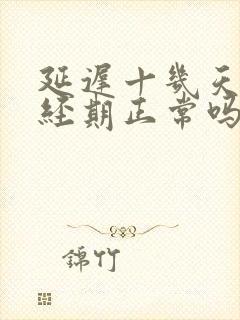 延遲十幾天
經期正常嗎
錦竹